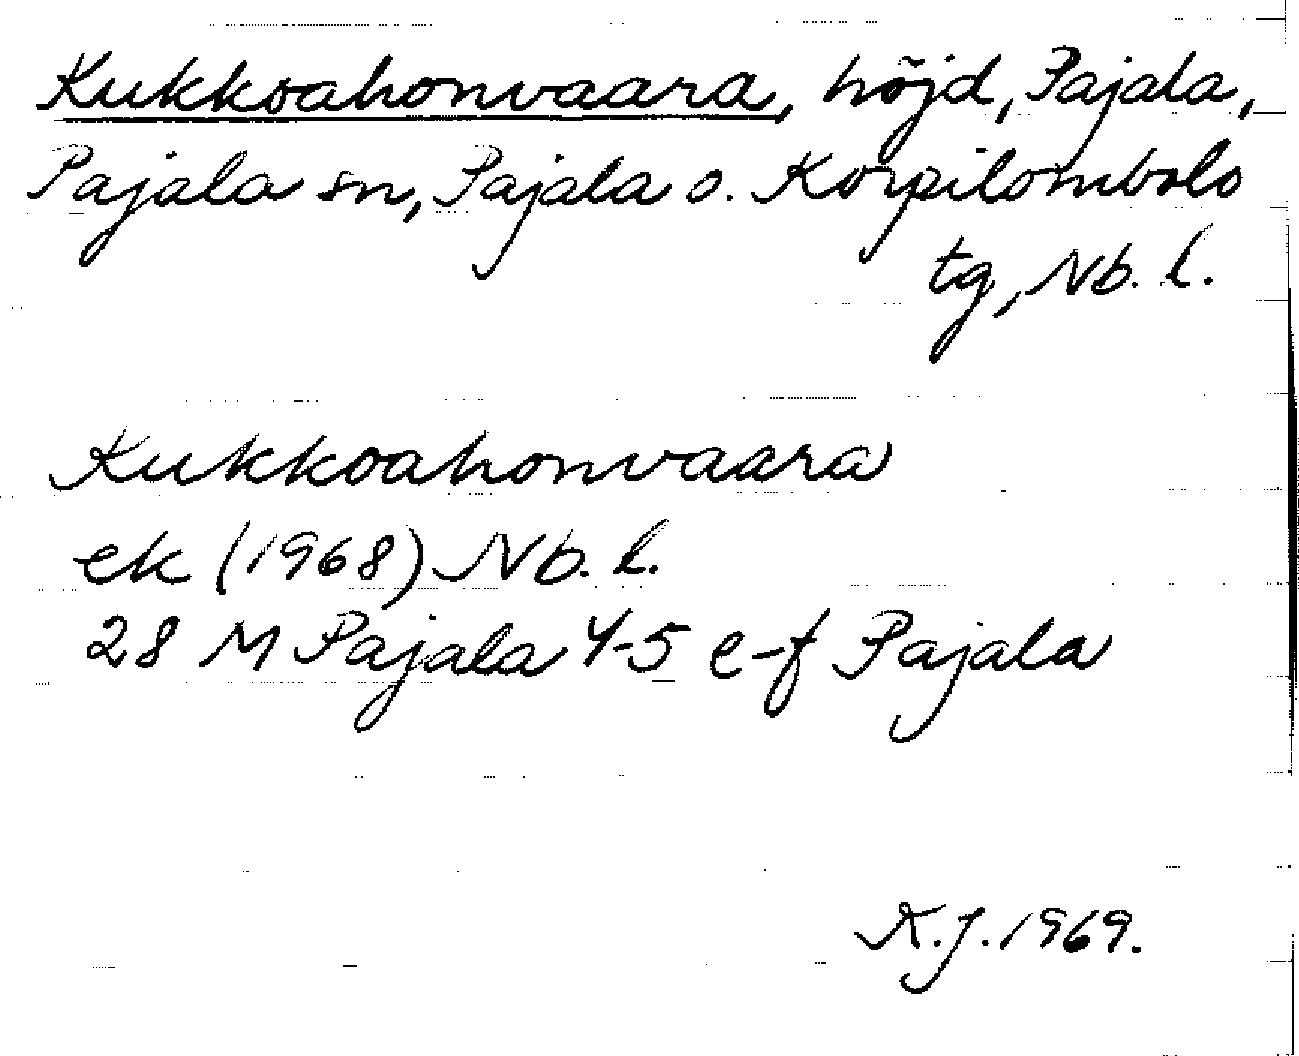 Kukkoahonvaara, höjd, Pajala,
Pajala sn, Pajala o. Korpilombolo
tg, Nb. l.
Kukkoahonvaara
ek (1968) Nb. l.
28 M Pajala 4-5 e-f Pajala
K.J. 1969.